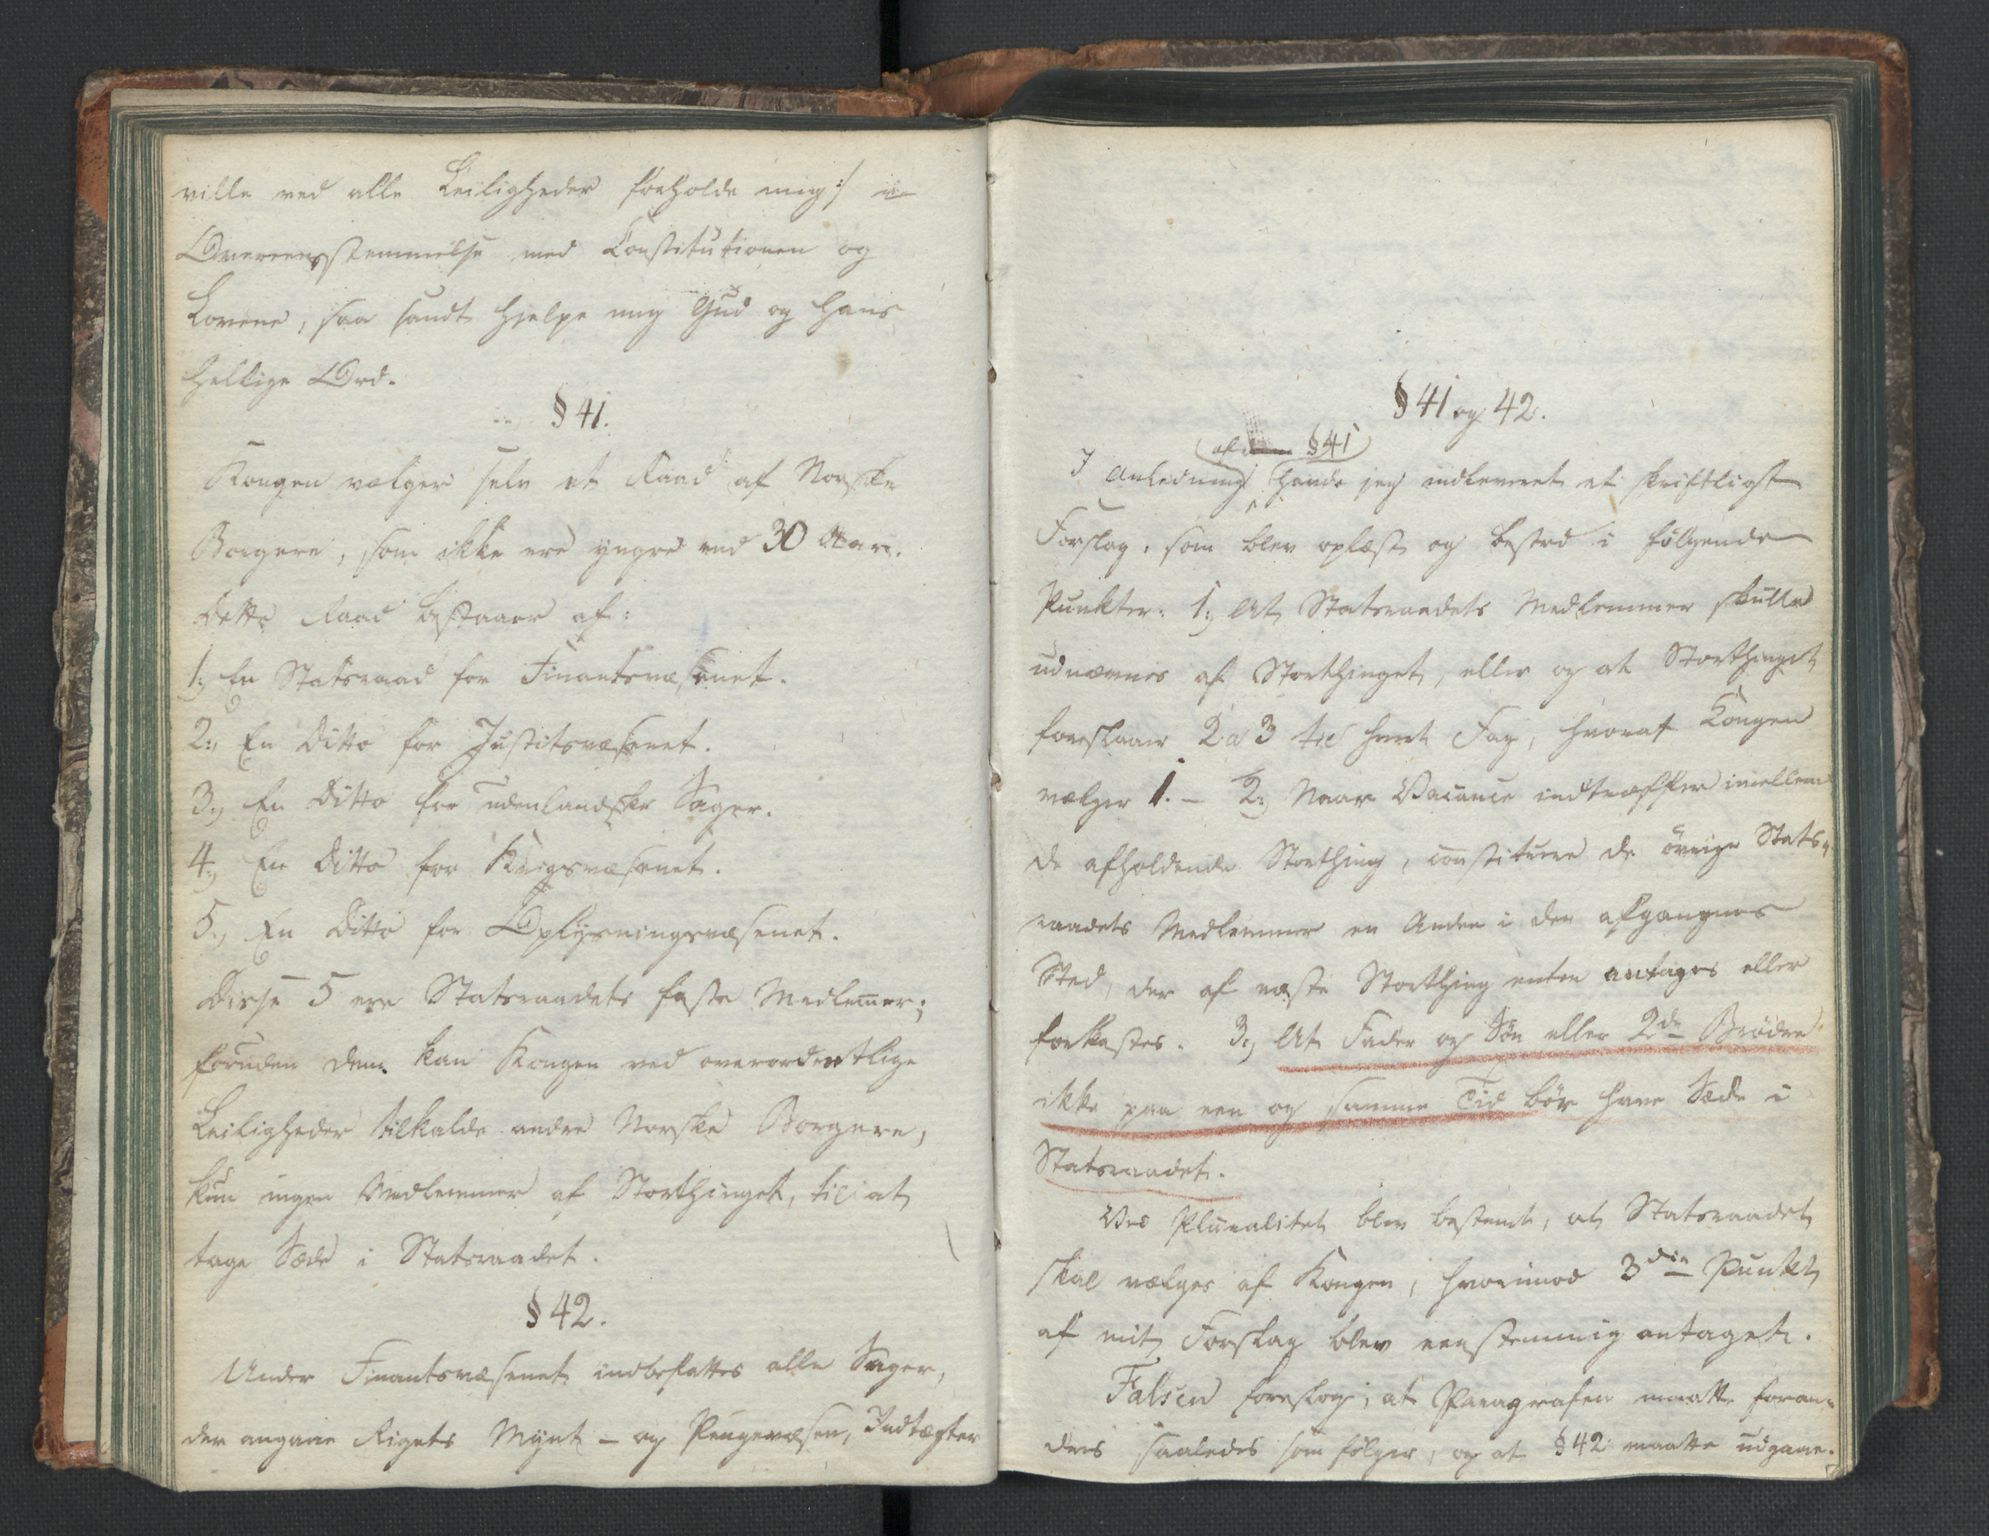 ville ved alle Leiligheder forholde mig :/ i
Overeensstemmelse med Constitutionen og
Lovene, saa sandt hjelpe mig Gud og hans
hellige Ord.
§ 41.
Kongen vælger selv et Raad af Norske
Borgere, som ikke ere yngre end 30 Aar.
Dette Raad bestaaer af:
1:, En Statsraad for Finantsvæsenet.
2:, En Ditto for Justitsvæsenet.
3:, En Ditto for udenlandske Sager.
4:, En Ditto for Krigsvæsenet.
5:, En Ditto for Oplysningsvæsenet.
Disse 5 ere Statsraadets faste Medlemer;
foruden dem kan Kongen ved overordentlige
Leiligheder tilkalde andre Norske Borgere,
kun ingen Medlemmer af Storthinget, til at
tage Sæde i Statsraadet.
§ 42.
Under Finantsvæsenet indbefattes alle Sager,
der angaae Rigets Mynt- og Pengevæsen, Indtægter
§ 41 og 42.
af § 41
I Anledning havde jeg indleveret et skriftligt
Forslag, som blev oplæst og bestod i følgende
Punkter: 1:, At Statsraadets Medlemmer skulle
udnævnes af Storthinget, eller og at Storthinget
foreslaaer 2 à 3 til hvert Fag, hvoraf Kongen
vælger 1. - 2:, Naar Vacance indtræffer imellem
de afholdende Storthing, constituere de øvrige Stats-
raadets Medlemmer en Anden i den afgangnes
Sted, der af næste Storthing enten antages eller
forkastes. 3:, At Fader og Søn eller 2de Brødre
ikke paa een og samme Tid bør have Sæde i
Statsraadet.
Ved Pluralitet blev bestemt, at Statsraadet
skal vælges af Kongen, hvorimod 3die Punkt
af mit Forslag blev eenstemmig antaget.
Falsen foreslog, at Paragrafen maatte foran-
dres saaledes som følger, og at § 42 maatte udgaae.